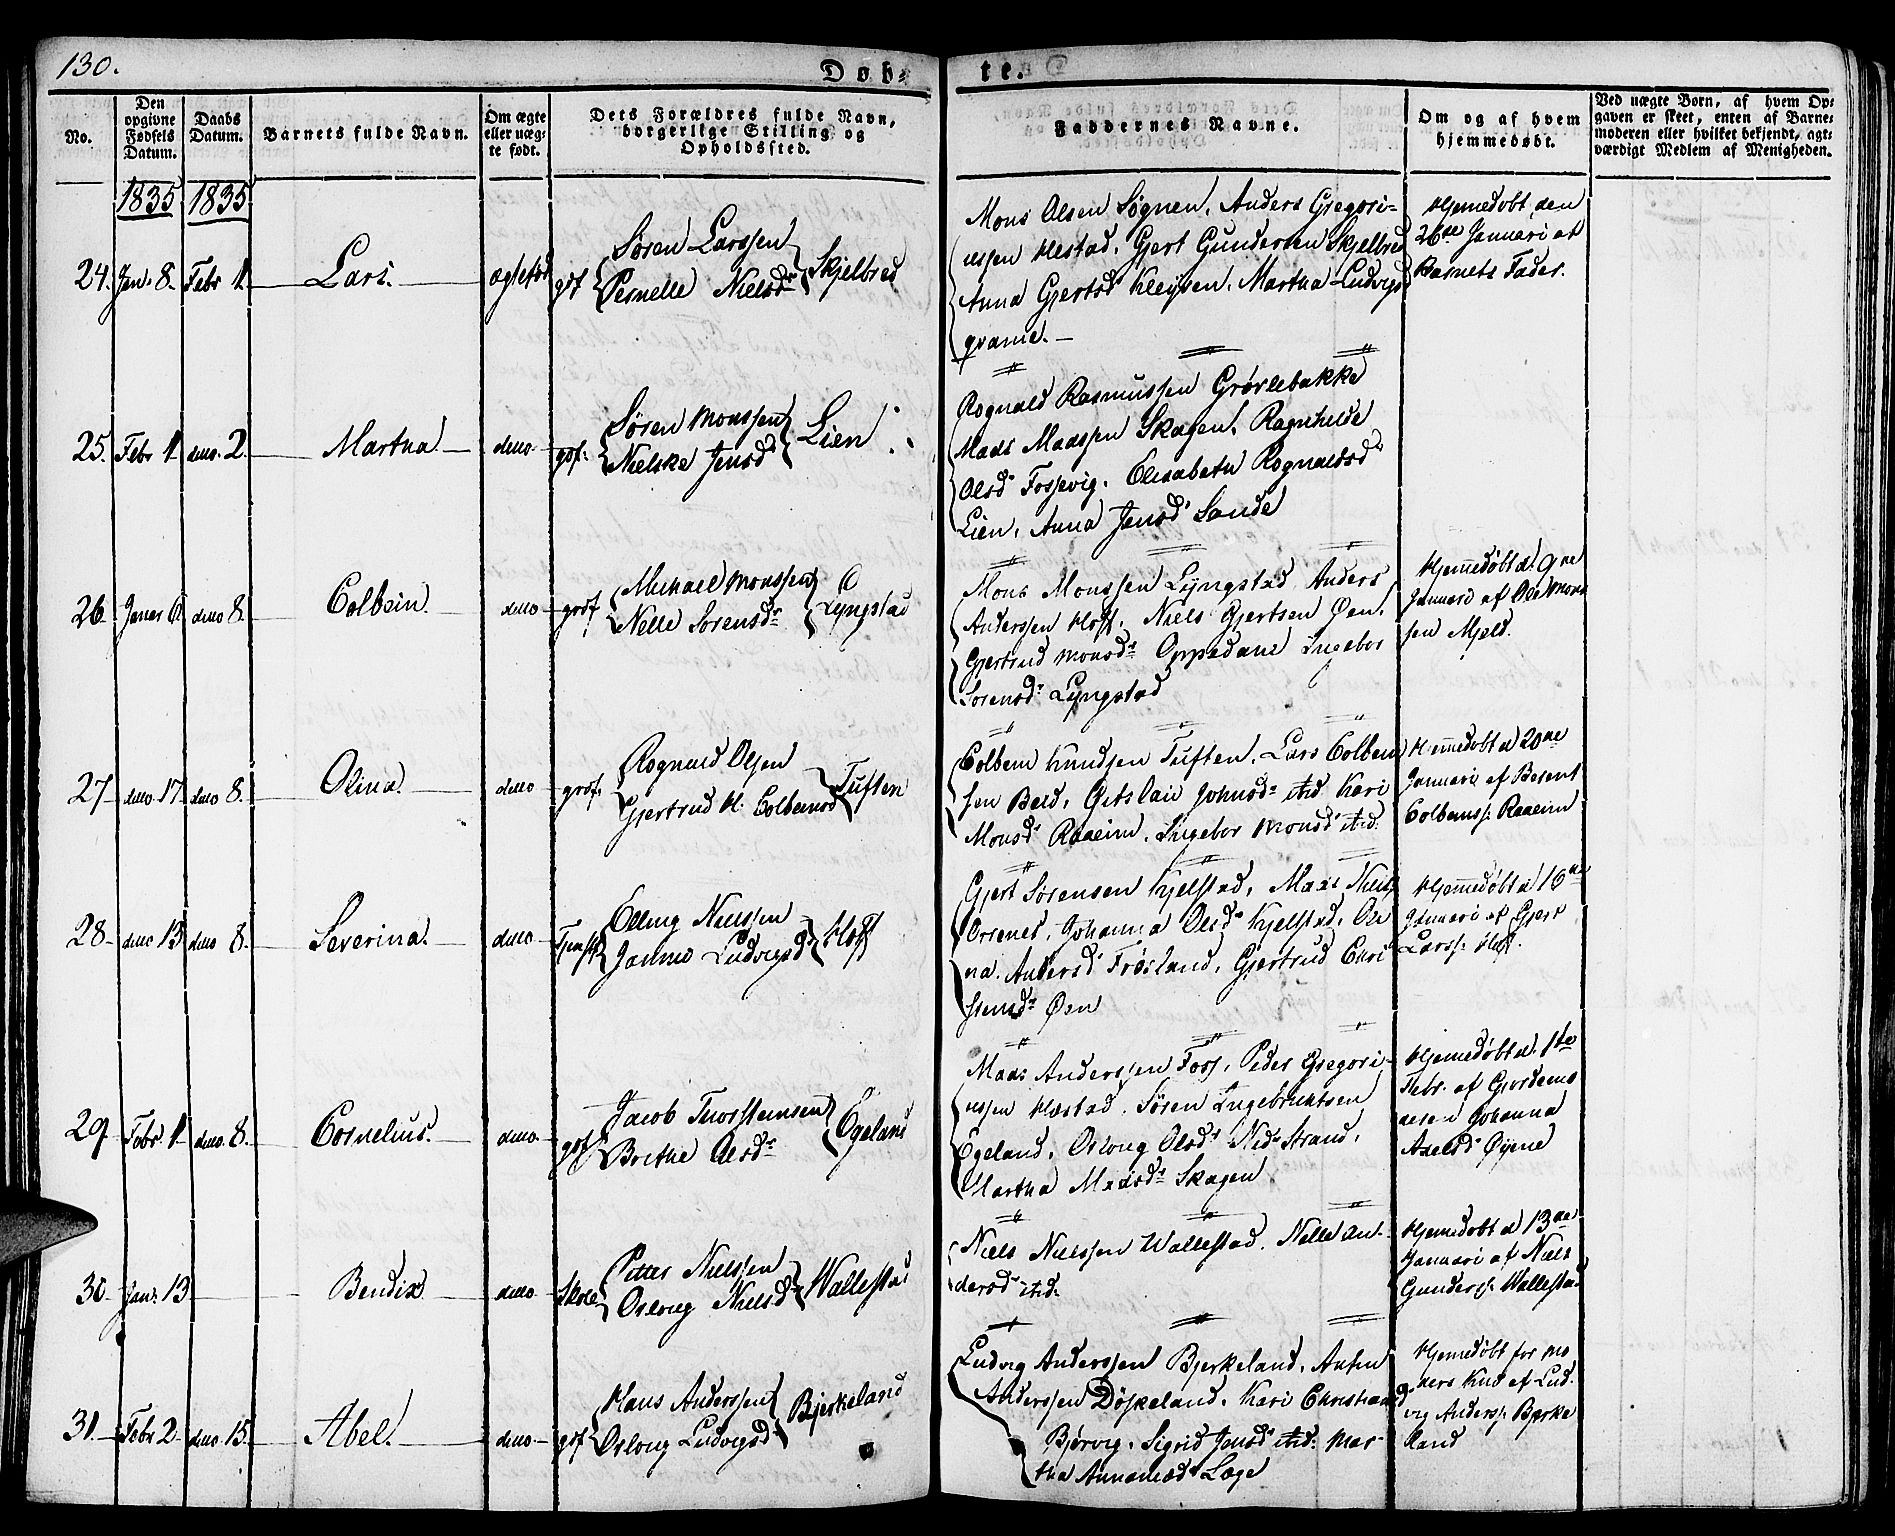 130.
Døb-
te.
No.
Den opgivne Fødsels Datum.
Daabs Datum.
Barnets fulde Navn.
Om ægte eller uægte født.
Dets Forældres fulde Navn, borgerlige Stilling og Opholdssted.
Faddernes Navne.
Om og af hvem hjemmedøbt.
Ved uægte Børn, af hvem Opgaven er skeet, enten af Barnemoderen eller hvilket bekjendt, agtværdigt Medlem af Menigheden.
1835 1835
24. Jan. 8. Febr 1. Lars. ægtefød
gbf Søren Larssen
Pernelle Nielsdr Skjelbred
Mons Olsen Søgnen, Anders Gregori-
ussen Hestad, Gjert Gundersen Skjelbred
Anna Gjertsd Kleyven, Martha Ludvigsd
qvame.
Hjemmedøbt den
26de Januari af
Barnets Fader.
25. Febr 1. ditto 2. Martha ditto
gbf: Søren Monssen
Nielske Jensd Lien
Rognald Rasmussen Grørlebakke
Mads Madssen Skagen, Ragnhilde
Olsd Fossevig, Elisabeth Rognaldsd
Lien, Anna Jensd Sande
26 Januar 6 ditto 8. Colbein ditto
gbf Michael Monssen
Nelle Sørensdr Lyngstad
Mons Monssen Lyngstad Anders
Anderssen Hoff, Niels Gjertsen Øen,
Gjertrud Monsdr Oppedane Ingebor
Sørensdr Lyngstad
Hjemmedøbt d. 9ne
Januari af Ole Mons
sen Mjeld.
27 ditto 17 ditto 8. Olina. ditto
Rognald Olsen
Gjertrud H. Colbensd Tuften
Colbein Knudsen Tuften, Lars Colbein
sen Bald, Johnsdr ibid Kari
Monsd Raaeim, Ingebor Monsd ibid.
Hjemmedøbt d 20ne
Januari af Berent
Colbenss: Raaeim
28 ditto 13 ditto 8. Severina. ditto
Elling Nielssen
Janne Ludvigsd Hoff
Gjert Sørensen Kjelstad, Mads Niels
Orsenes, Johanna Olsd Kjelstad, Oli
na Andersd Frøsland, Gjertrud Chri
stensdr Øen
Hjemmedøbt d 16ne
Januari af Gjert
Larss: Hoff.
29 Febr 1. ditto 8. Cornelius. ditto
gbf Jacob Thorsteinsen
Brithe Olsdr Egeland
Mads Anderssen Foss, Peder Gregori-
ussen Hæstad, Søren Ingebrichtsen
Egeland, Oslong Olsdr Nid-Strand,
Martha Madsdr Skagen
Hjemmedøbt d. 1te
Febr. af Gjordemo
deren Johanna
Axelsd Øyene
30 Jan. 13 Bendix ditto
Pitter Nielssen
Oslong Nielsd Wallestad
Niels Nielssen Wallestad, Nelle An-
dersdr ibid.
Hjemmedøbt d 13ne
Januari af Niels
Gunderss: Wallestad
31 Febr 2 ditto 15. Abel. ditto
gbf Hans Anderssen
Oslong Ludvigsd Bjerkeland
Ludvig Anderssen Bjerkeland, Anton
Anderssen Døskeland, Kari Christiansd
Bjørvig, Sigrid Jensd ibid: Mar-
tha Annamadsd Lage
Hjemmedøbt for mo
ders af Lud-
vig Anderss: Bjerke
land